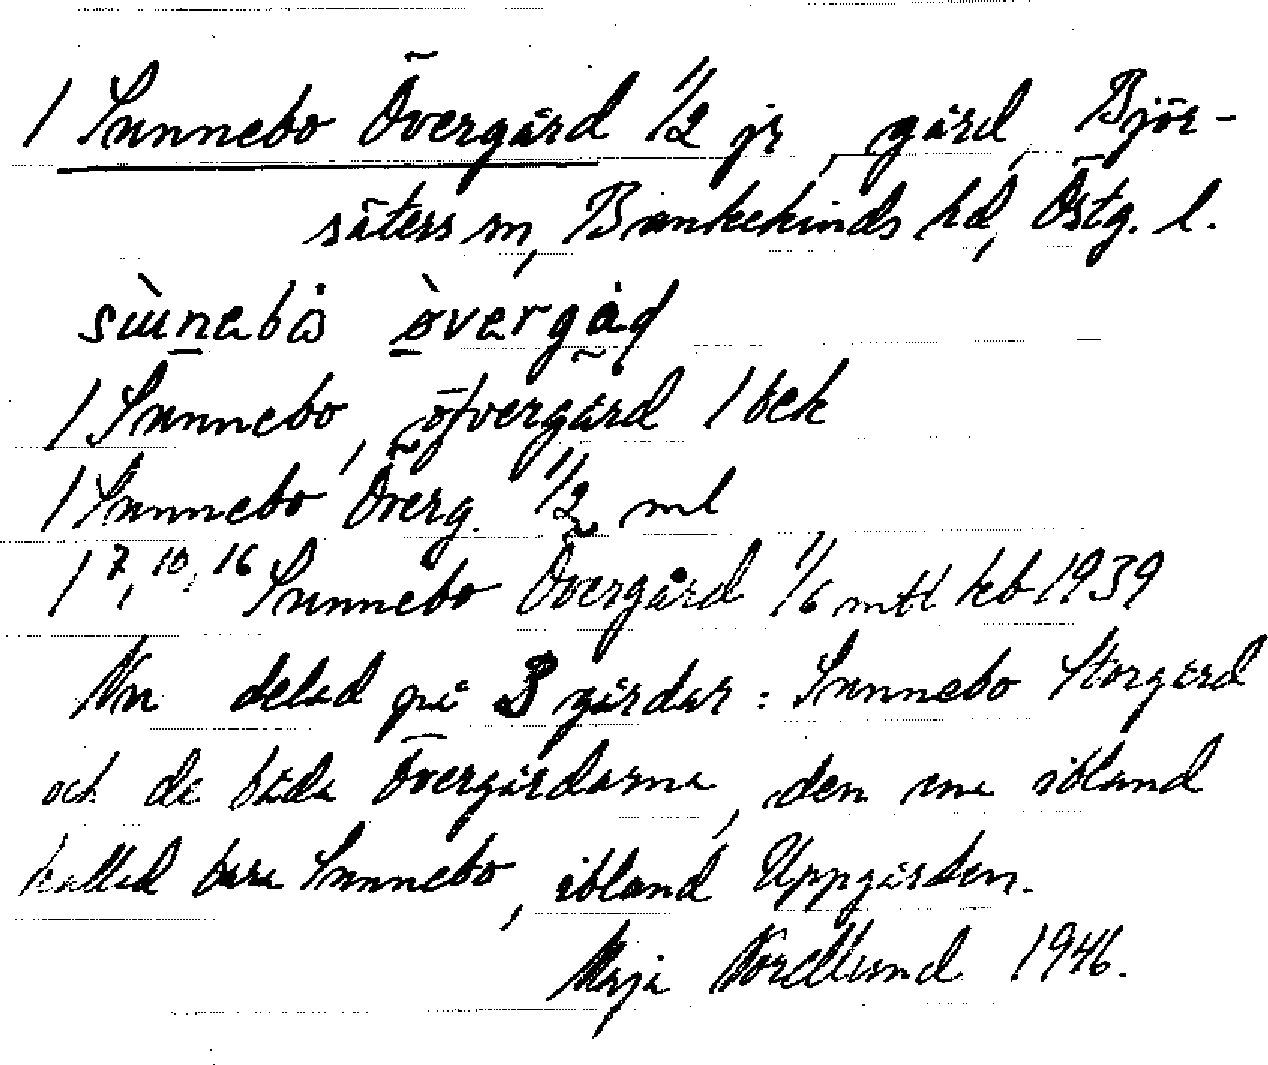 1 Sunnebo Övergård 1/2 jr, gård, Björ-
säters sn, Bankekinds hd, Östg. l.
1 Sunnebo, öfvergård 1 bek
1 Sunnebo Överg. 1/2 ml
1 7, 10, 16 Sunnebo Övergård 1/6 mtl kb 1939
Nu delad på 3 gårdar: Sunnebo Storgård
och de båda Övergårdarna, den ena ibland
kallad bara Sunnebo, ibland Uppgården.
Maja Nordlund 1946.